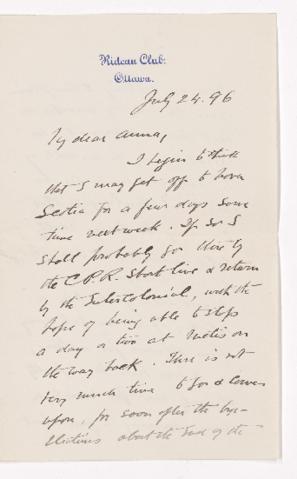 Rideau Club.
Ottawa.
July 24. 96
My dear Anna,
I begin to think
that I may get off to Nova
Scotia for a few days some
time next week. If so I
shall probably go there by
the C.P.R. Short line & return
by the Intercolonial, with the
hope of being able to stop
a day or two at Metis on
the way back. There is not
very much time to go & come
upon, for soon after the bye-
elections about the end of the